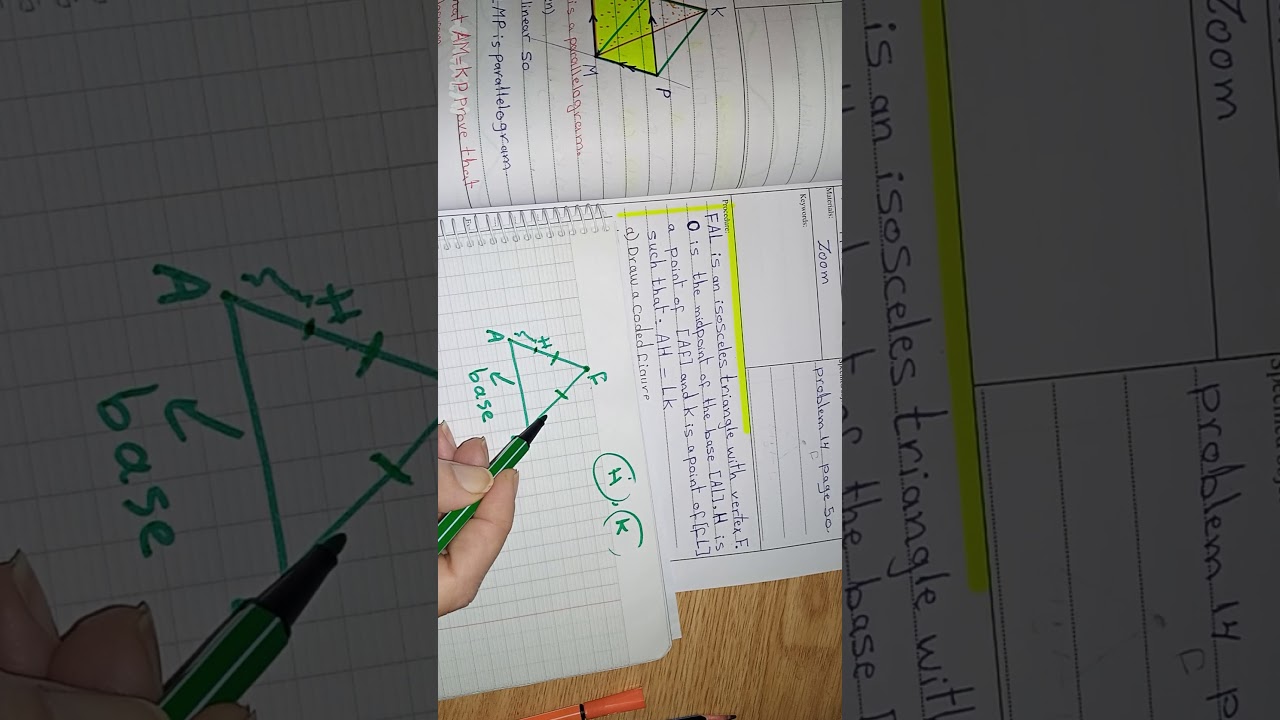 Materials:
Zoom
Keywords:
problem 14 page 50.
Procedure:
FAL is an isosceles triangle with vertex F.
O is the midpoint of the base [AL], H is
a point of [AF] and k is a point of [FL]
such that: AH = Lk
a) Draw a coded figure
F
H
A
base
H, K
K
M
P
is a parallelogram.
linear so
MP is parallelogram
AM=KP prove that
Zoom
problem 14 p
is an isosceles triangle with
of the base
A
H
base